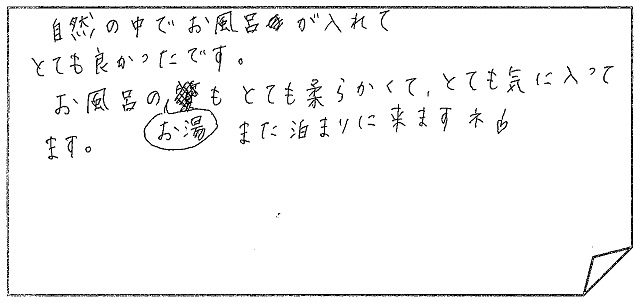 自然の中でお風呂が入れて
とても良かったです。
お風呂のお湯もとても柔らかくて、とても気に入って
ます。 また泊まりに来ますネ